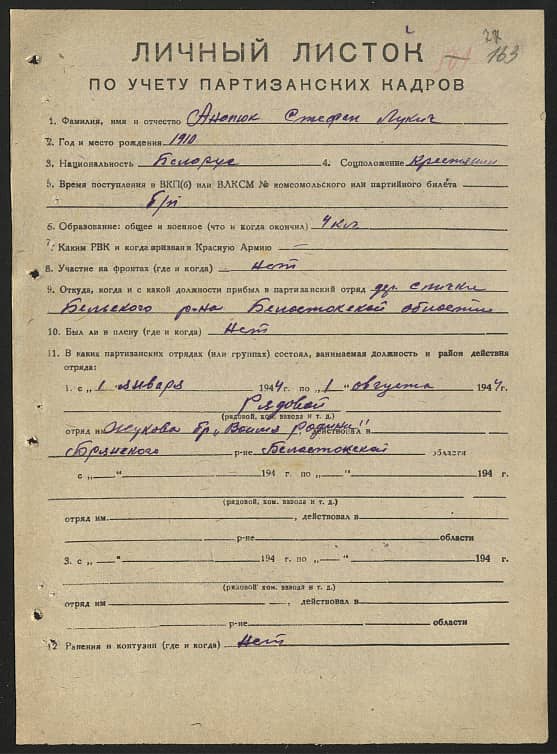 163
ЛИЧНЫЙ ЛИСТОК
ПО УЧЕТУ ПАРТИЗАНСКИХ КАДРОВ
1. Фамилия, имя и отчество Анопюк Стефан Лукич
2. Год и место рождения 1910
3. Национальность Белорус 4. Соцположение крестьянин
5. Время поступления в ВКП(б) или ВЛКСМ № комсомольского или партийного билета
б/п
6. Образование: общее и военное (что и когда окончил) 4 кл
7. Каким РВК и когда призван в Красную Армию —
8. Участие на фронтах (где и когда) Нет
9. Откуда, когда и с какой должности прибыл в партизанский отряд дер. Спички
Бельского р-на Белостокской области
10. Был ли в плену (где и когда) Нет
11. В каких партизанских отрядах (или группах) состоял, занимаемая должность и район действия
отряда:
1. с „ 1 января 1944 г. по „ 1 “ августа 1944 г.
Рядовой
(рядовой, ком. взвода и т. д.)
отряд им Жукова бр. „Воимя Родины" действовал в
Брянского р-не Белостокской области
с „ “ 194 г. по „ “ 194 г.
(рядовой, ком. взвода и т. д.)
отряд им. , действовал в
р-не области
3. с „ “ 194 г. по „ “ 194 г.
(рядовой, ком. взвода и т. д.)
отряд им , действовал в
р-не области
12 Ранения и контузии (где и когда) Нет